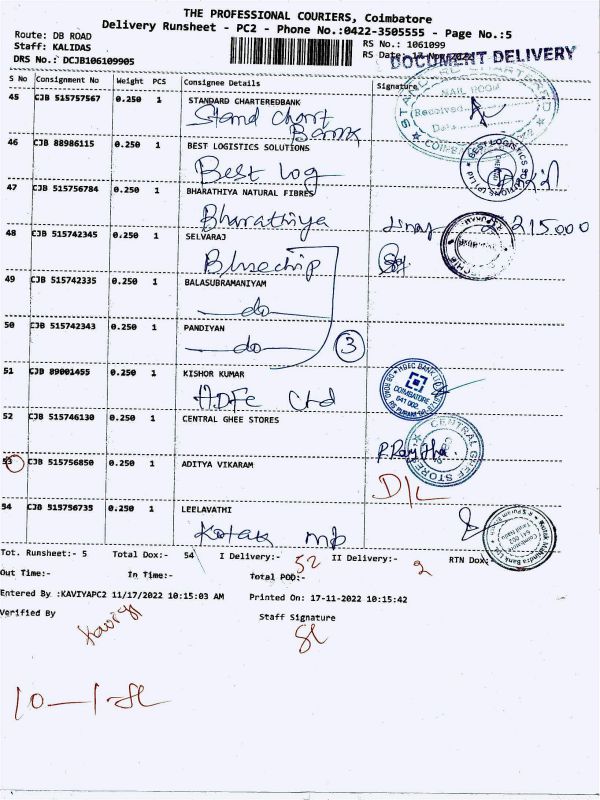 THE PROFESSIONAL COURIERS, Coimbatore
Delivery Runsheet - PC2 - Phone No.:0422-3505555 - Page No.:5
Route: DB ROAD
Staff: KALIDAS
DRS No.: DCJB106109905
RS No.: 1061099
RS Date: 17-Nov-2022
DOCUMENT DELIVERY
S No Consignment No Weight PCS Consignee Details Signature
45 CJB 515757567 0.250 1 STANDARD CHARTEREDBANK
Stand chart
Bank
MAIL ROOM
Received
Date
46 CJB 88986115 0.250 1 BEST LOGISTICS SOLUTIONS
Best Log
47 CJB 515756784 0.250 1 BHARATHIYA NATURAL FIBRES
Bharathiya
215000
48 CJB 515742345 0.250 1 SELVARAJ
Bluechip
49 CJB 515742335 0.250 1 BALASUBRAMANIYAM
do
50 CJB 515742343 0.250 1 PANDIYAN
do
3
51 CJB 89001455 0.250 1 KISHOR KUMAR
HDFC Ltd
HDFC BANK LTD
COIMBATORE
641 002
52 CJB 515746130 0.250 1 CENTRAL GHEE STORES
CENTRAL GHEE STORES
53 CJB 515756850 0.250 1 ADITYA VIKARAM
D/L
54 CJB 515756735 0.250 1 LEELAVATHI
Kotak mp
Kotak Mahindra Bank Ltd.
Coimbatore
641 002
Tamil Nadu
Tot. Runsheet:- 5 Total Dox:- 54 I Delivery:- 52 II Delivery:- 2 RTN Dox:-
Out Time:- In Time:- Total POD:-
Entered By :KAVIYAPC2 11/17/2022 10:15:03 AM Printed On: 17-11-2022 10:15:42
Verified By Staff Signature